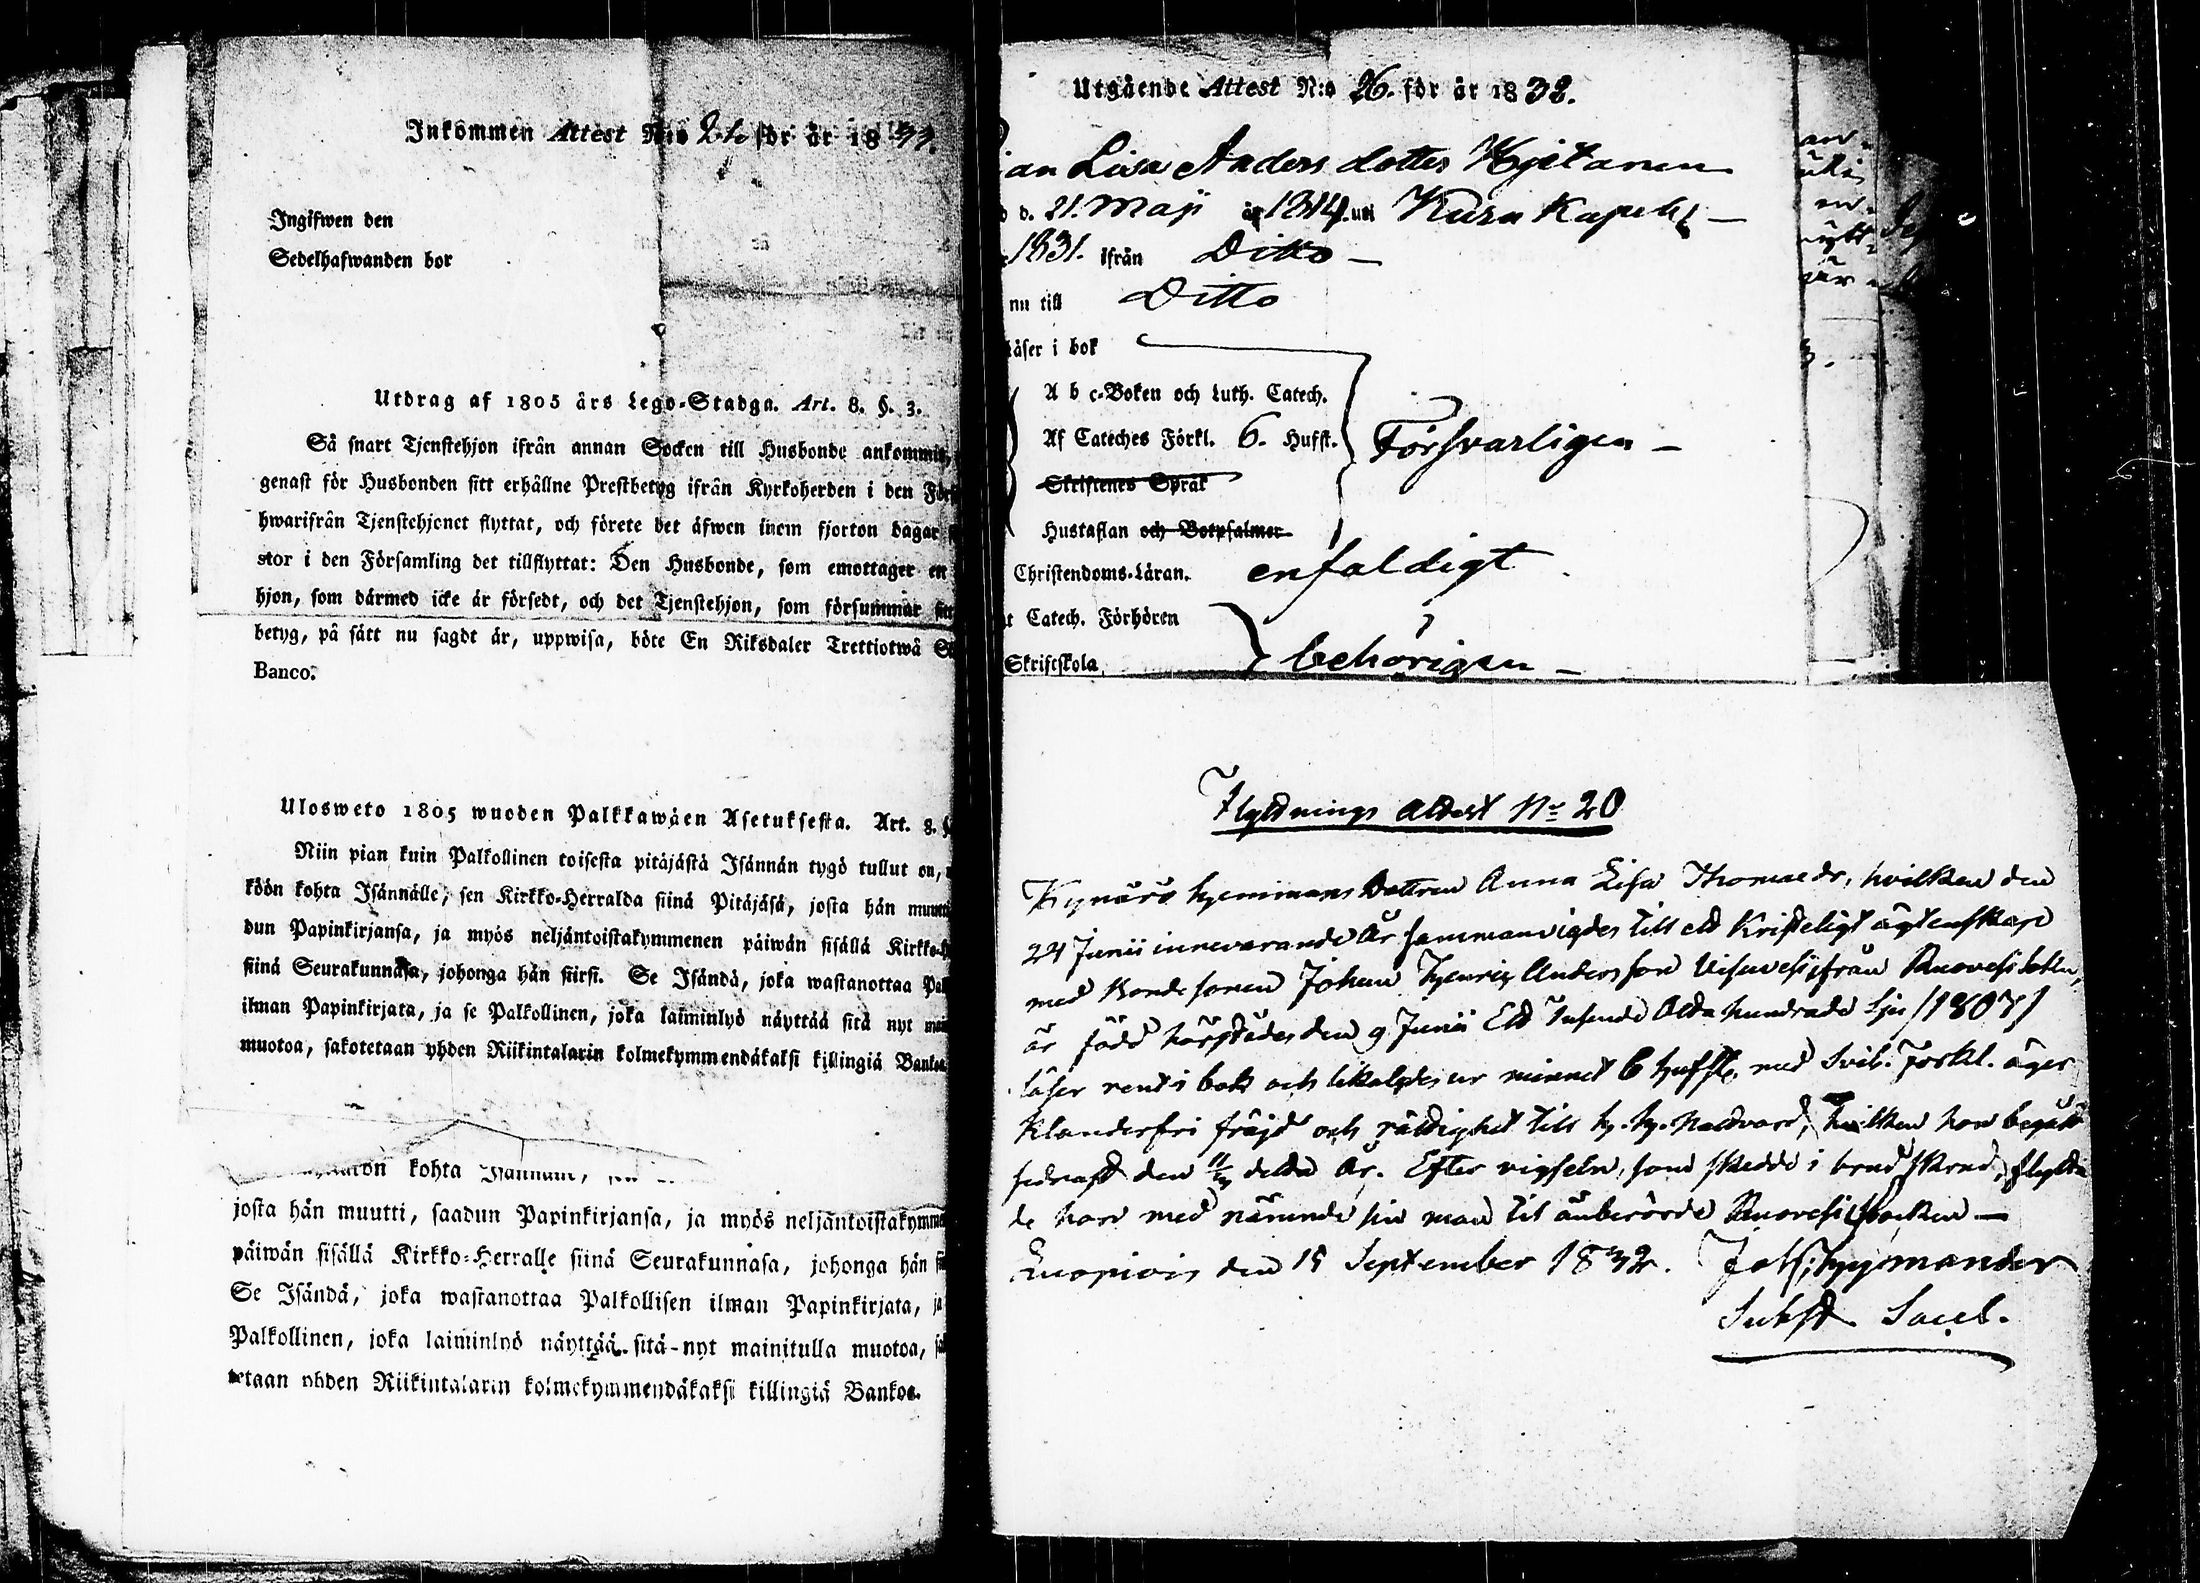 Inkommen Attest N:o för år 1833.
Ingifwen den
Sedelhafwanden bor
Utdrag af 1805 års Lego-Stadga. Art. 8. §. 3.
Så snart Tjenstehjon ifrån annan Socken till Husbonde ankommit,
genast för Husbonden sitt erhållne Prestbetyg ifrån Kyrkoherden i den För
hwarifrån Tjenstehjonet flyttat, och förete det äfwen inom fjorton dagar
stor i den Församling det tillflyttat: Den Husbonde, som emottager en
hjon, som därmed icke är försedt, och det Tjenstehjon, som försummar sitt
betyg, på sätt nu sagdt är, uppwisa, böte En Riksdaler Trettiotwå
Banco.
Ulosweto 1805 wuoden Palkkawäen Asetuksesta. Art. 8. §
Niin pian kuin Palkollinen toisesta pitäjästä Isännän tygö tullut on,
köön kohta Isännälle, sen Kirkko-Herralda siinä Pitäjäsä, josta hän muutti
dun Papinkirjansa, ja myös neljäntoistakymmenen päiwän sisällä Kirkko-H
siinä Seurakunnasa, johonga hän siirsi. Se Isändä, joka wastanottaa Pal
ilman Papinkirjata, ja se Palkollinen, joka laiminlyö näyttää sitä nyt mai
muotoa, sakotetaan yhden Riikintalarin kolmekymmendäkaksi killingiä Bankoa
kohta Isännälle,
josta hän muutti, saadun Papinkirjansa, ja myös neljäntoistakymme
päiwän sisällä Kirkko-Herralle siinä Seurakunnasa, johonga hän si
Se Isändä, joka wastanottaa Palkollisen ilman Papinkirjata, ja
Palkollinen, joka laiminlyö näyttää sitä-nyt mainitulla muotoa, sa
tetaan yhden Riikintalarin kolmekymmendäkaksi killingiä Bankoa.
Utgående Attest N:o 26. för år 1832.
an Lisa Anders dotter Hjetanen
d. 21. Maji år 1814. uti Kuru Kapell
1831. ifrån Ditto
nu till Ditto
läser i bok
A b c-Boken och Luth. Catech.
Af Cateches Förkl. 6. Hufst. Försvarligen
Skriftenes Språk
Hustaflan och Botpsalmer
Christendoms-Läran. enfaldigt
t Catech. Förhören
Skriftskola behörigen
Flyttnings attest No 20
hemmans Dottren Anna Lisa Thomasdr, hvilken den
24 Junii innevarande År sammanvigdes till ett Kristeligt ägtenskap
med Bonde sonen Johan Henric Andersson Visuvesi ifrån Ruovesi
är född härstädes den 9 Junii Ett Tusende Åtta hundrade Sju /1807/
läser rent i bok och ur minnet 6 hufst. med Sveb. Förkl. äger
Klanderfri fräjd och rättighet till H. H. Nattvard, hvilken hon begått
sednast den detta År. Efter vigseln, som skedde i brud skrud, flytta
de hon med nämnde sin man til änberörde Ruovesi Socken
den 15 September 1832.
Subst. Sacel.